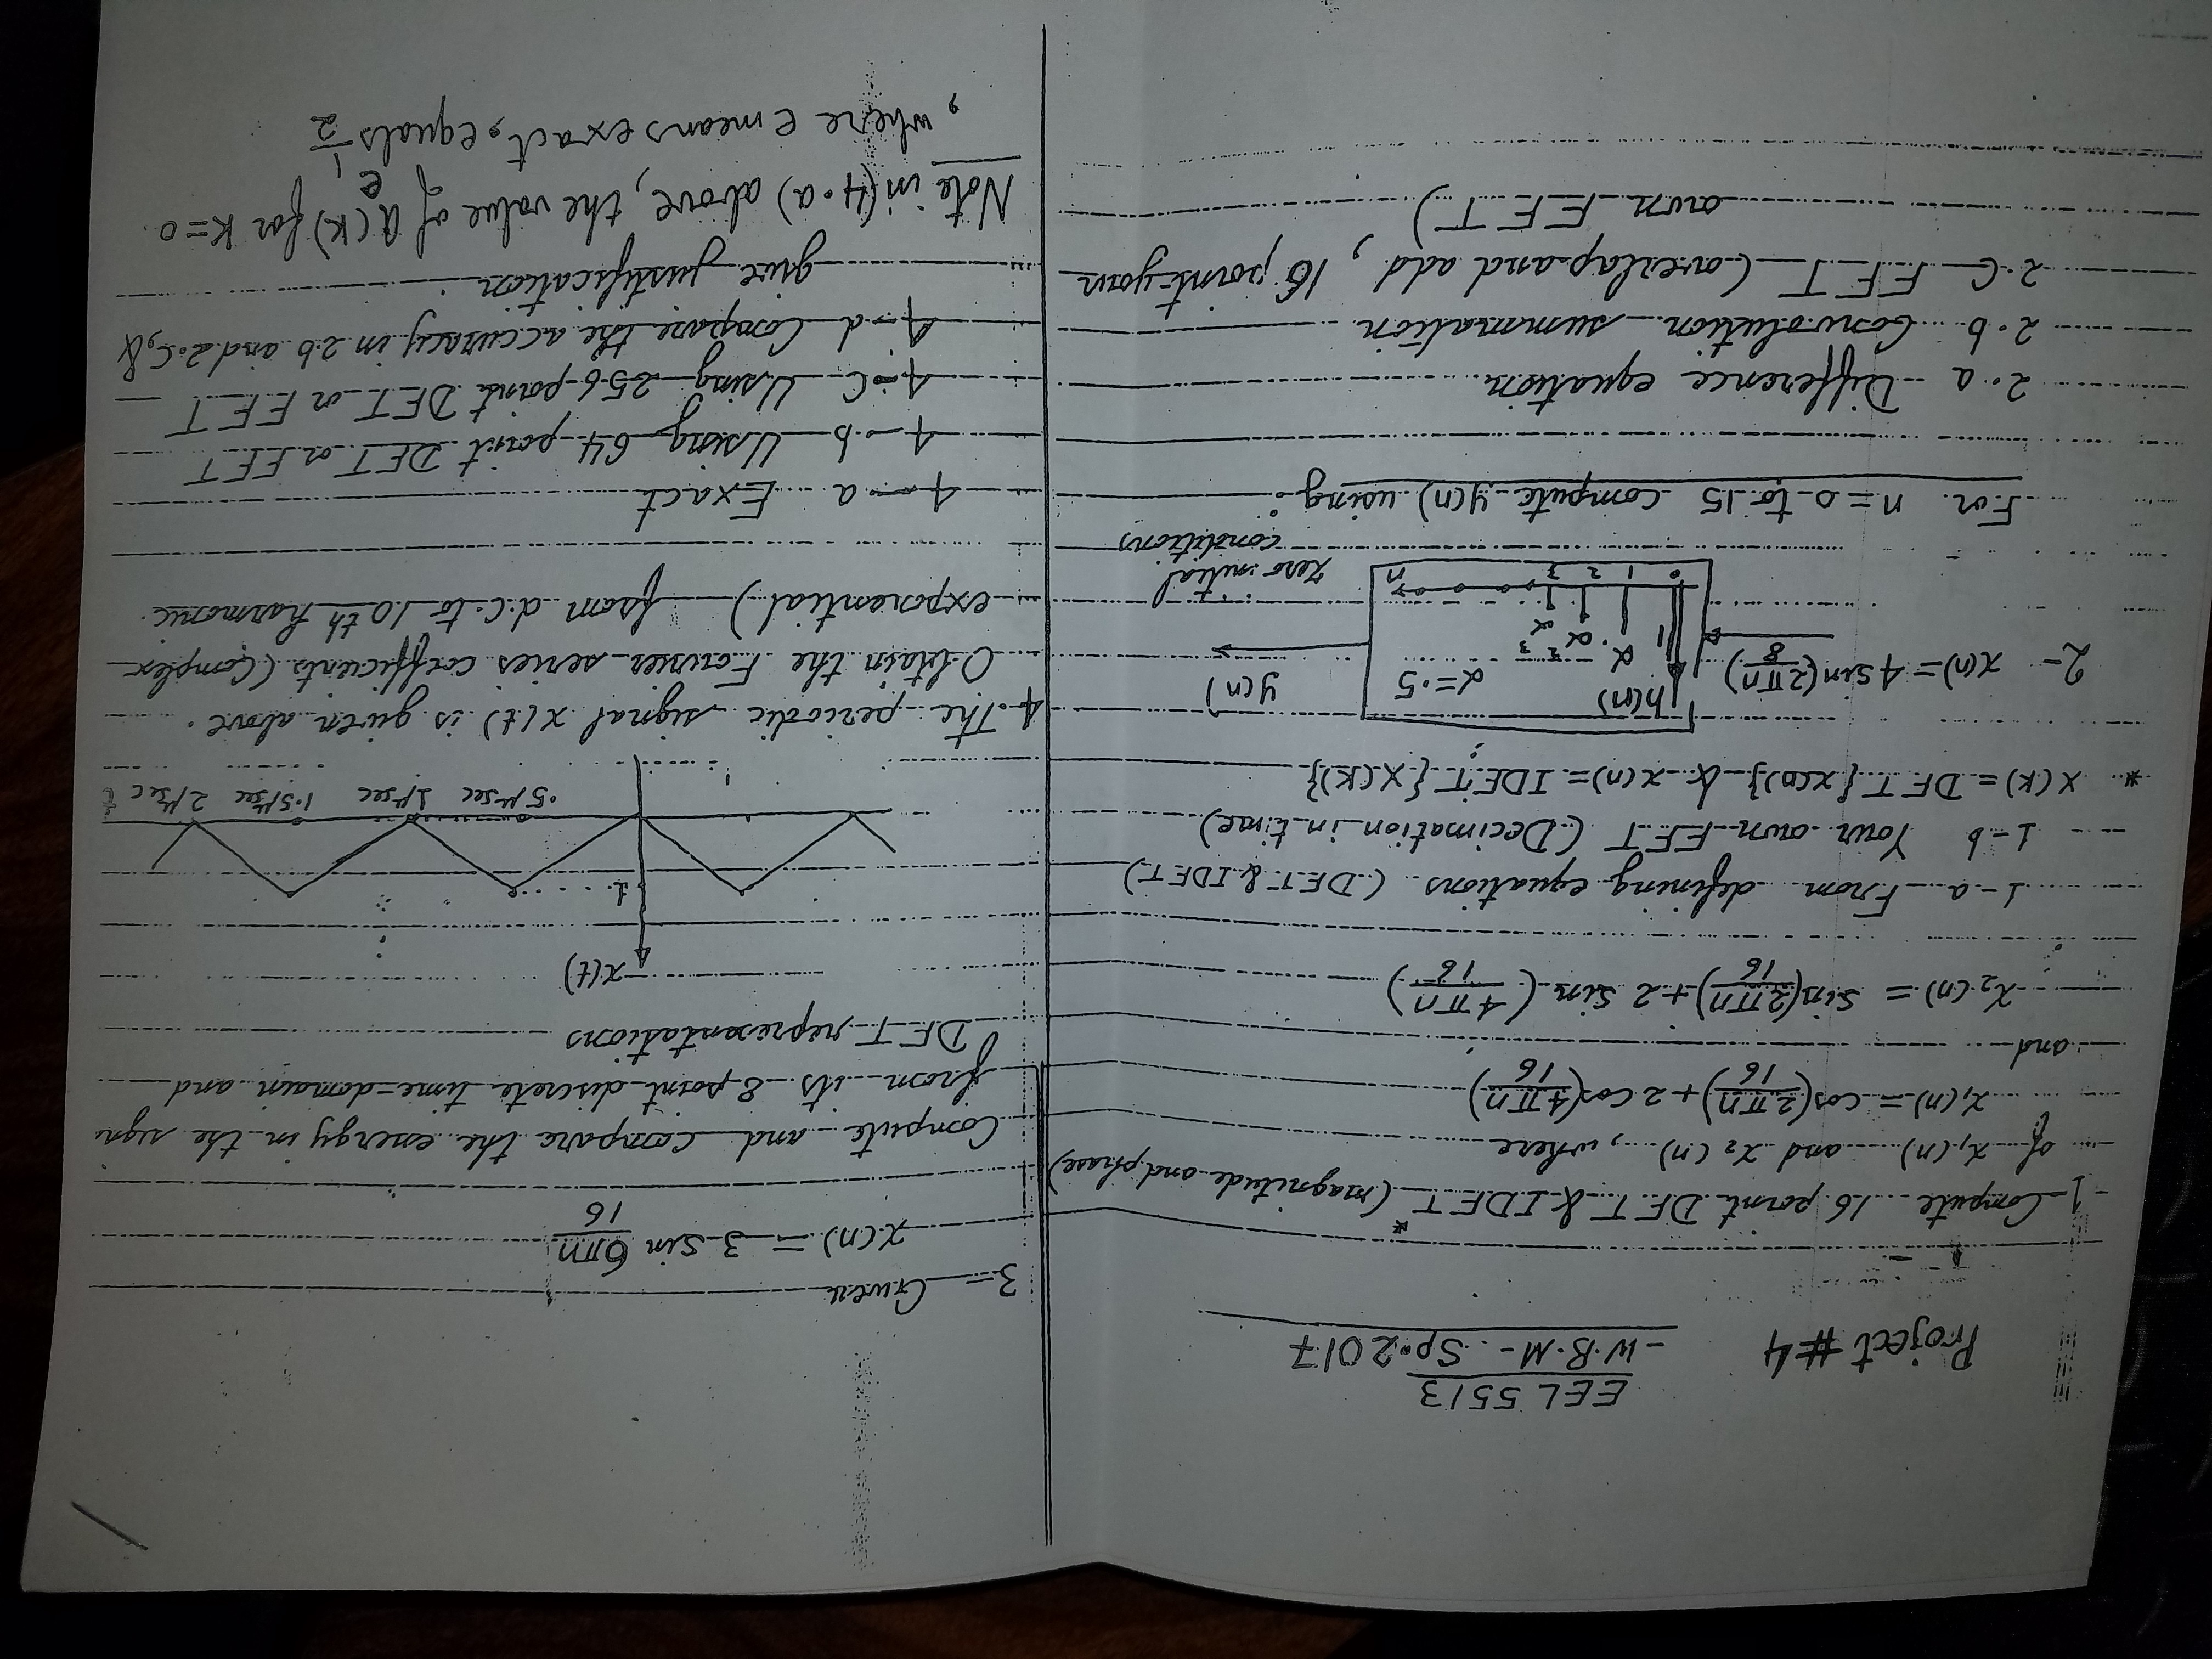 EEL 5513
Project #4 -W.B.M- Sp.2017
1- Compute 16 point DFT & IDFT* (magnitude and phase)
of x₁(n) and x₂(n), where
x₁(n) = cos(2πn/16) + 2 cos(4πn/16)
and
x₂(n) = sin(2πn/16) + 2 sin (4πn/16)
1-a From defining equations (DFT & IDFT)
1-b Your own FFT (Decimation in time)
* X(K) = DFT {x(n)} & x(n) = IDFT {X(K)}
2- x(n) = 4 sin(2πn/8) h(n) α = .5 y(n)
1 α α² α³
0 1 2 3 n
zero initial
conditions
For n = 0 to 15 compute y(n) using:
2.a Difference equation
2.b Convolution summation
2.C FFT (overlap and add, 16 point-your
own FFT)
3- Given
x(n) = 3 sin 6πn/16
Compute and compare the energy in the sign
from its 8 point discrete time-domain and
DFT representations
x(t)
1
.5 μsec 1 μsec 1.5 μsec 2 μsec t
4. The periodic signal x(t) is given above.
Obtain the Fourier series coefficients (Complex
exponential) from d.c. to 10th harmonic.
4-a Exact
4-b Using 64 point DFT or FFT
4-C Using 256-point DFT or FFT
4-d Compare the accuracy in 2.b and 2.C, &
give justification.
Note in (4.a) above, the value of aₑ(K) for K=0
, where e means exact, equals 1/2